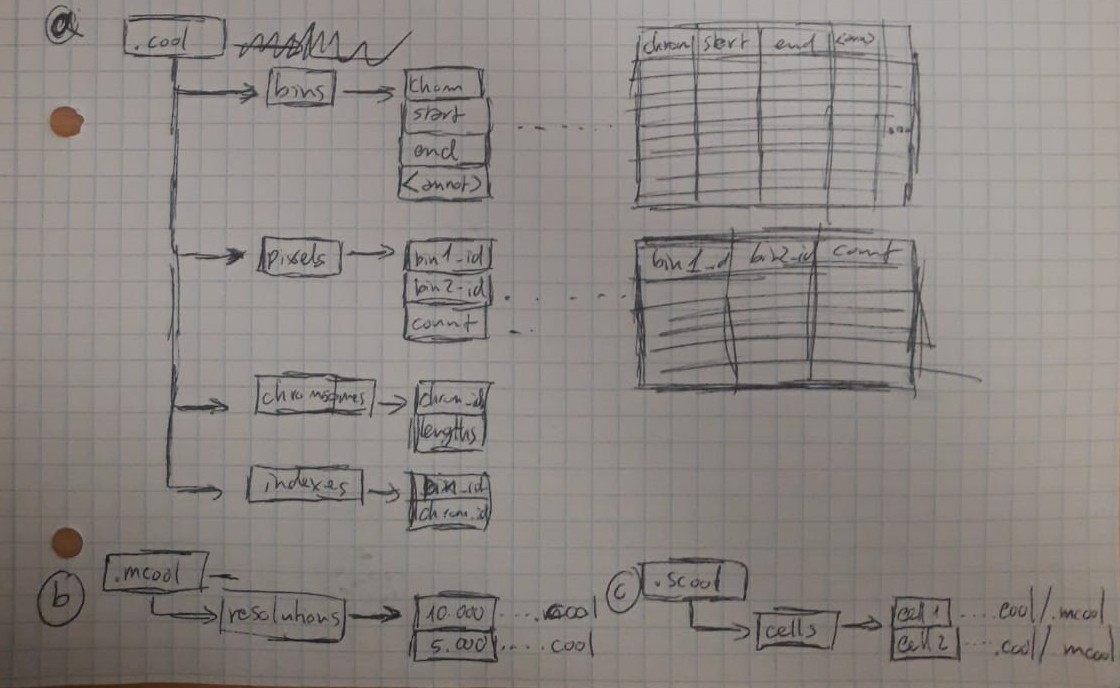 a
.cool
bins
chrom
start
end
<annot>
chrom start end
...
pixels
bin1_id
bin2_id
count
bin1_id bin2_id count
chromsomes
chrom_id
lengths
indexes
bin_id
chrom_id
b
.mcool
resolutions
10.000 .....cool
5.000 .....cool
c
.scool
cells
cell 1 .....cool/.mcool
cell 2 .....cool/.mcool